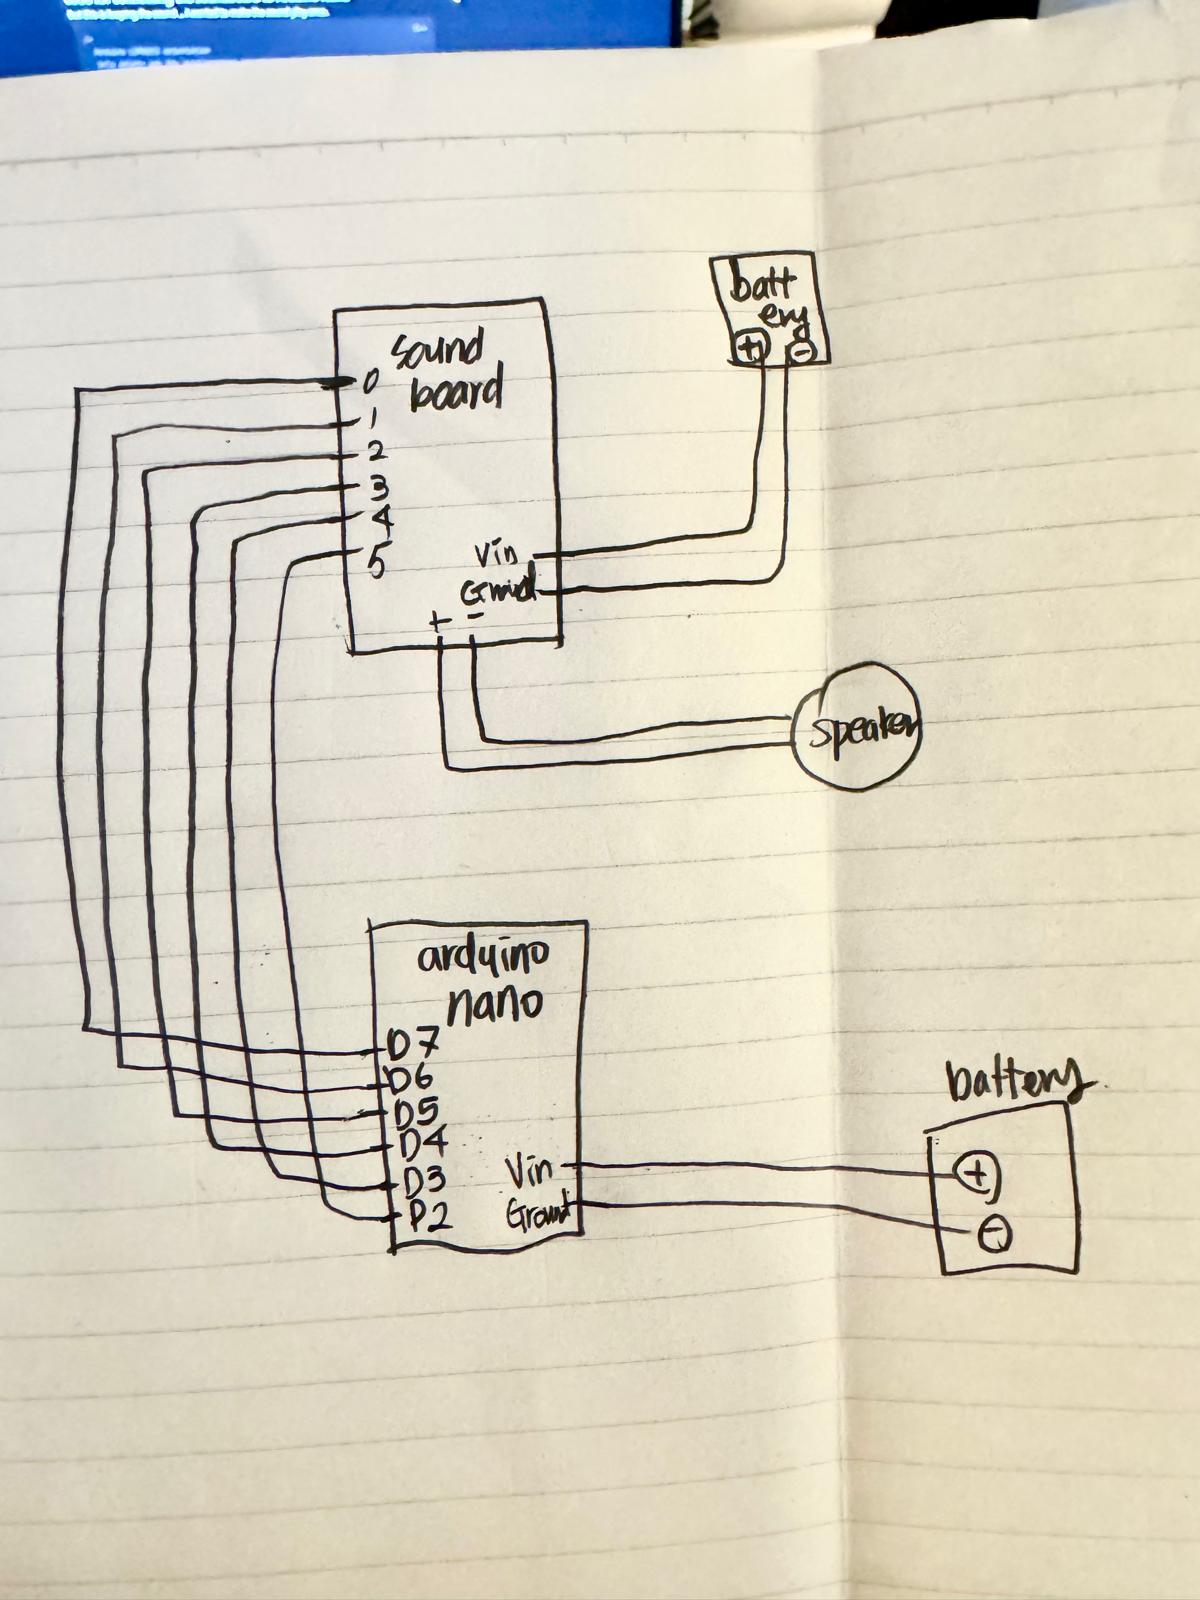 Sound
board
0
1
2
3
4
5
Vin
+ -
batt
ery
+ -
speaker
arduino
nano
D7
D6
D5
D4
D3
D2
Vin
Ground
battery
+
-